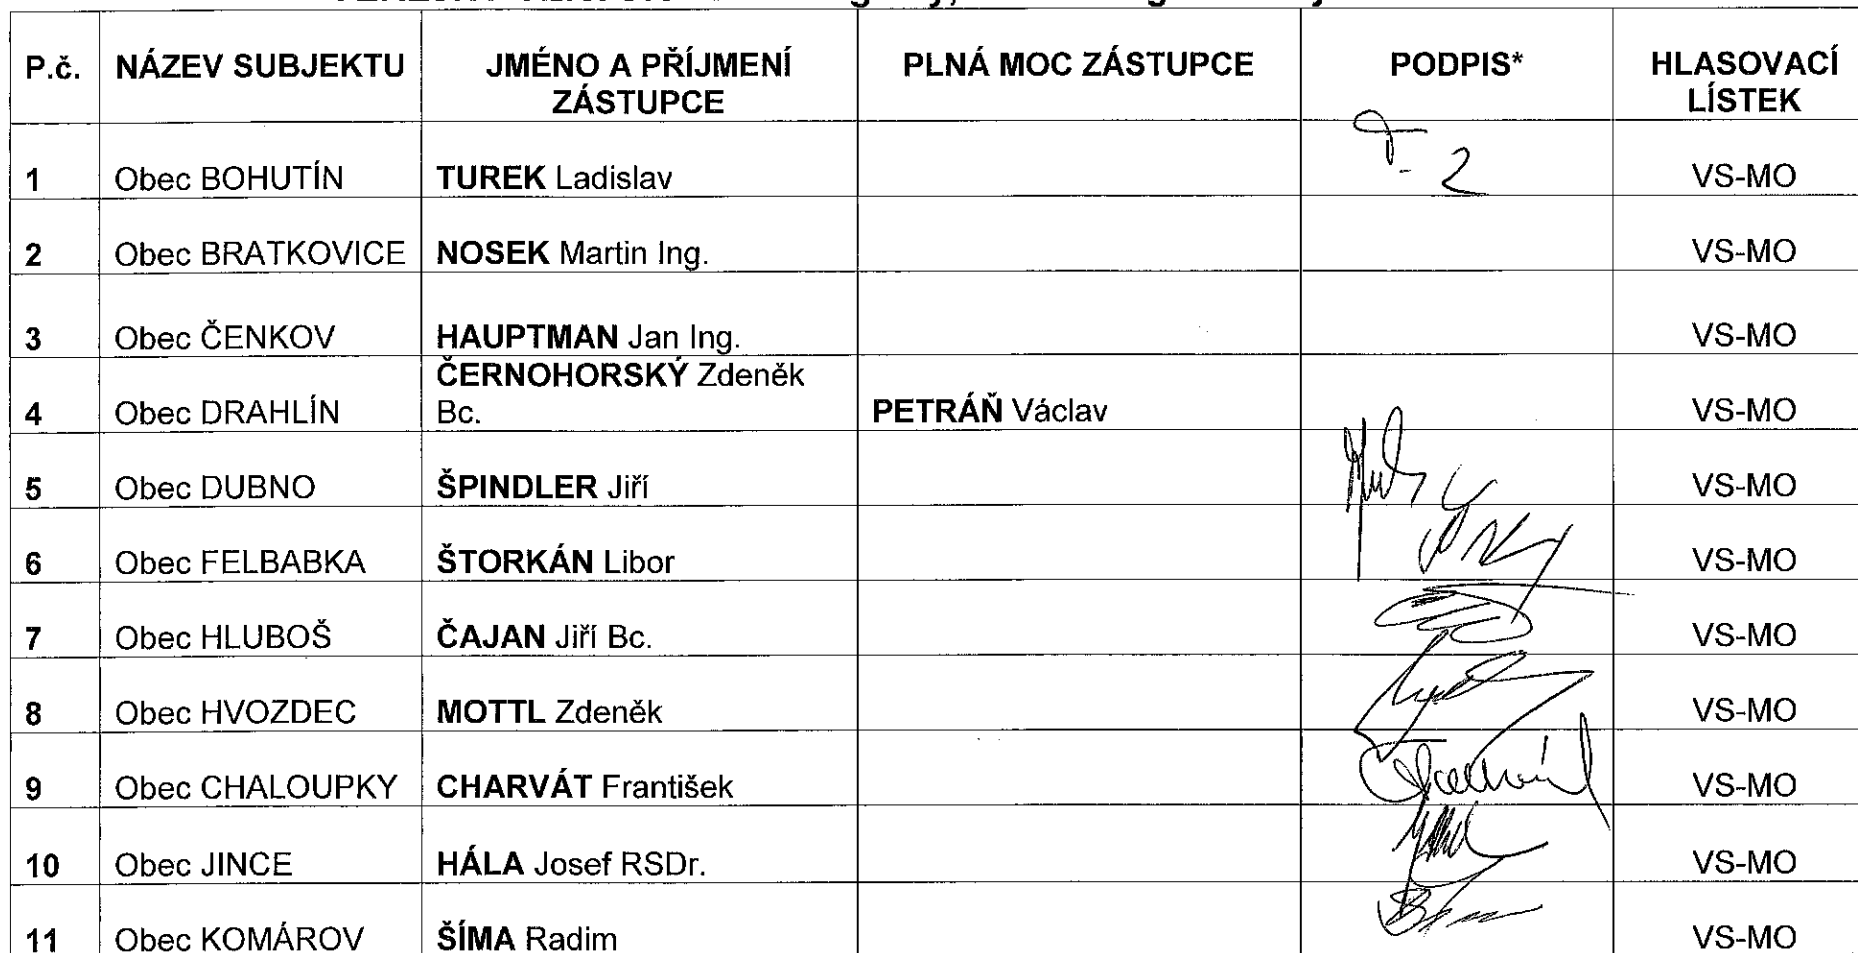 P.č. NÁZEV SUBJEKTU JMÉNO A PŘÍJMENÍ ZÁSTUPCE PLNÁ MOC ZÁSTUPCE PODPIS* HLASOVACÍ LÍSTEK
1 Obec BOHUTÍN TUREK Ladislav VS-MO
2 Obec BRATKOVICE NOSEK Martin Ing. VS-MO
3 Obec ČENKOV HAUPTMAN Jan Ing. VS-MO
4 Obec DRAHLÍN ČERNOHORSKÝ Zdeněk Bc. PETRÁŇ Václav VS-MO
5 Obec DUBNO ŠPINDLER Jiří VS-MO
6 Obec FELBABKA ŠTORKÁN Libor VS-MO
7 Obec HLUBOŠ ČAJAN Jiří Bc. VS-MO
8 Obec HVOZDEC MOTTL Zdeněk VS-MO
9 Obec CHALOUPKY CHARVÁT František VS-MO
10 Obec JINCE HÁLA Josef RSDr. VS-MO
11 Obec KOMÁROV ŠÍMA Radim VS-MO